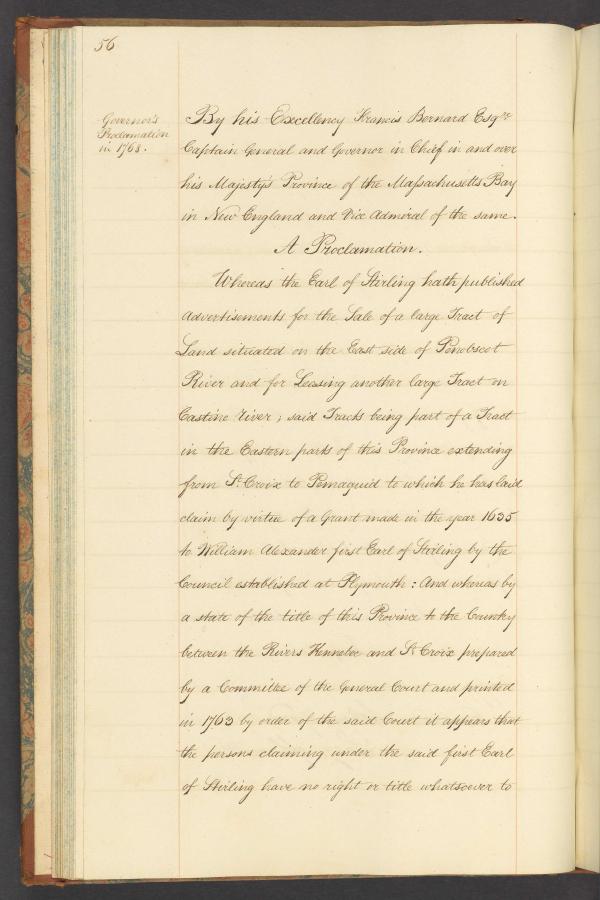 56
Governor's
Proclamation
in 1768.
By his Excellency Francis Bernard Esqre
Captain General and Governor in Chief in and over
his Majesty's Province of the Massachusetts Bay
in New England and Vice Admiral of the same.
A Proclamation.
Whereas the Earl of Stirling hath published
advertisements for the Sale of a large Tract of
Land situated on the East side of Penobscot
River and for Leasing another large Tract on
Castine River; said Tracks being part of a Tract
in the Eastern parts of this Province extending
from St. Croix to Pemaquid to which he has laid
claim by virtue of a Grant made in the year 1635
to William Alexander first Earl of Stirling by the
Council established at Plymouth: And whereas by
a state of the title of this Province to the Country
between the Rivers Kennebec and St. Croix prepared
by a Committee of the General Court and printed
in 1763 by order of the said Court it appears that
the persons claiming under the said first Earl
of Stirling have no right or title whatsoever to